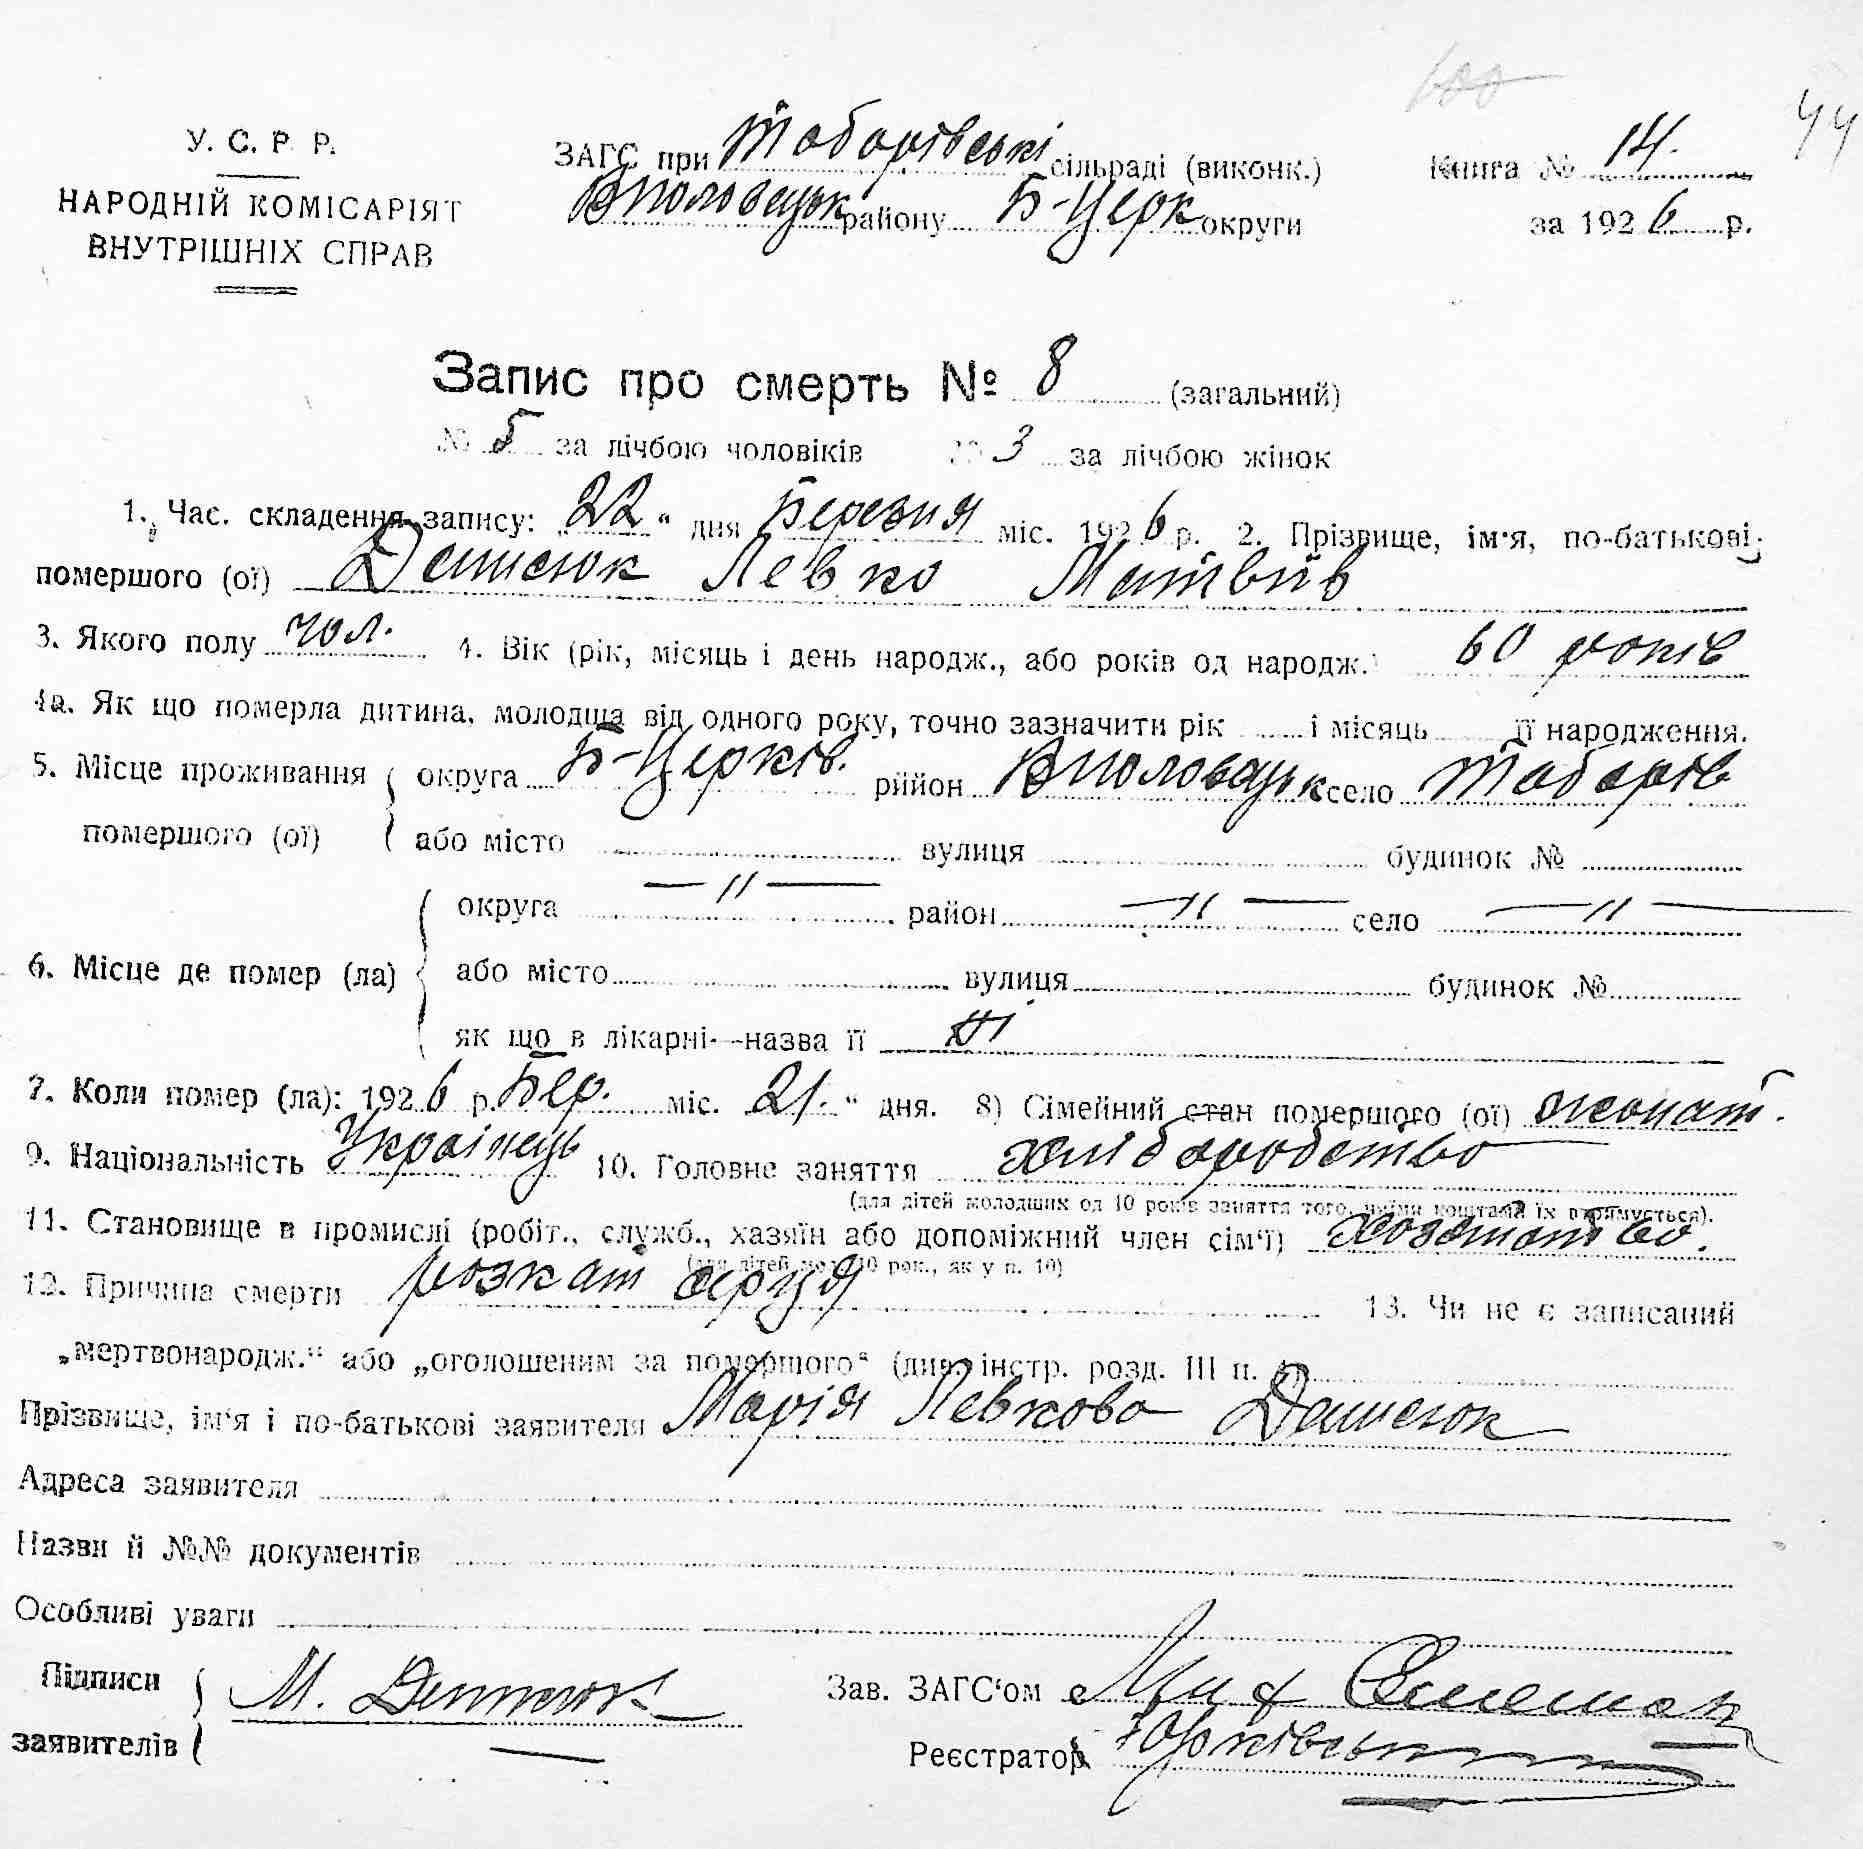 100
44
У. С. Р. Р.
НАРОДНІЙ КОМІСАРІЯТ
ВНУТРІШНІХ СПРАВ
ЗАГС при Табарівські сільраді (виконк.)
Вполовецьк району Б-Церк округи
Книга № 14.
за 1926 р.
Запис про смерть № 8 (загальний)
№ 5 за лічбою чоловіків № 3 за лічбою жінок
1. Час. складення запису: „22“ дня Березня міс. 1926 р. 2. Прізвище, ім'я, по-батькові
помершого (ої) Денисюк Левко Матвіїв
3. Якого полу чол. 4. Вік (рік, місяць і день народж., або років од народж.) 60 років
4а. Як що померла дитина, молодша від одного року, точно зазначити рік і місяць її народження.
5. Місце проживання округа Б-Церків. район Вполовецьк село Табарів
помершого (ої) або місто вулиця будинок №
округа — 〃 — район — 〃 — село — 〃 —
6. Місце де помер (ла) або місто вулиця будинок №
як що в лікарні—назва її
7. Коли помер (ла): 1926 р. Бер. міс. 21. “ дня. 8) Сімейний стан помершого (ої) жонат.
9. Національність Українець 10. Головне заняття хліборобство
(для дітей молодших од 10 років заняття того, якими коштами їх втримується).
11. Становище в промислі (робіт., служб., хазяїн або допоміжний член сім'ї)
(для дітей мол. 10 рок., як у п. 10)
12. Причина смерти серця 13. Чи не є записаний
„мертвонародж.“ або „оголошеним за помершого“ (див. інстр. розд. III п.
Прізвище, ім'я і по-батькові заявителя Марія Левкова Денисюк
Адреса заявителя
Назви й №№ документів
Особливі уваги
Підписи М. Денисюк
заявителів
Зав. ЗАГС'ом
Реєстратор